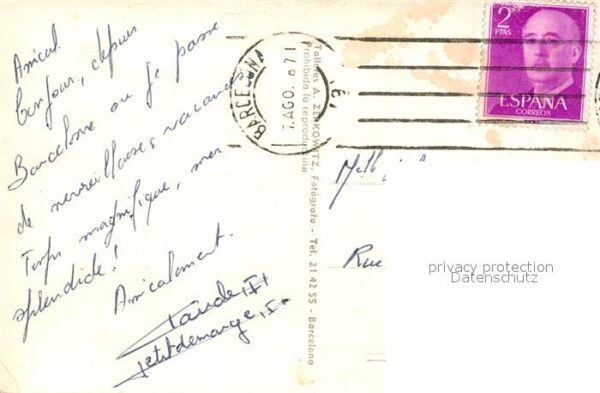 Amical
bonjour, depuis
Barcelone ou je passe
de merveilleuses vacances
Temps magnifique, mer
splendide!
Amicalement.
Claude
Petitdemange
BARCELONA
AGO.
Talleres A. ZERKOWITZ, Fotógrafo - Tel. 21 42 55 - Barcelona
Prohibida la reproducción
2
PTAS
ESPAÑA
CORREOS
Mlle
Rue
privacy protection
Datenschutz